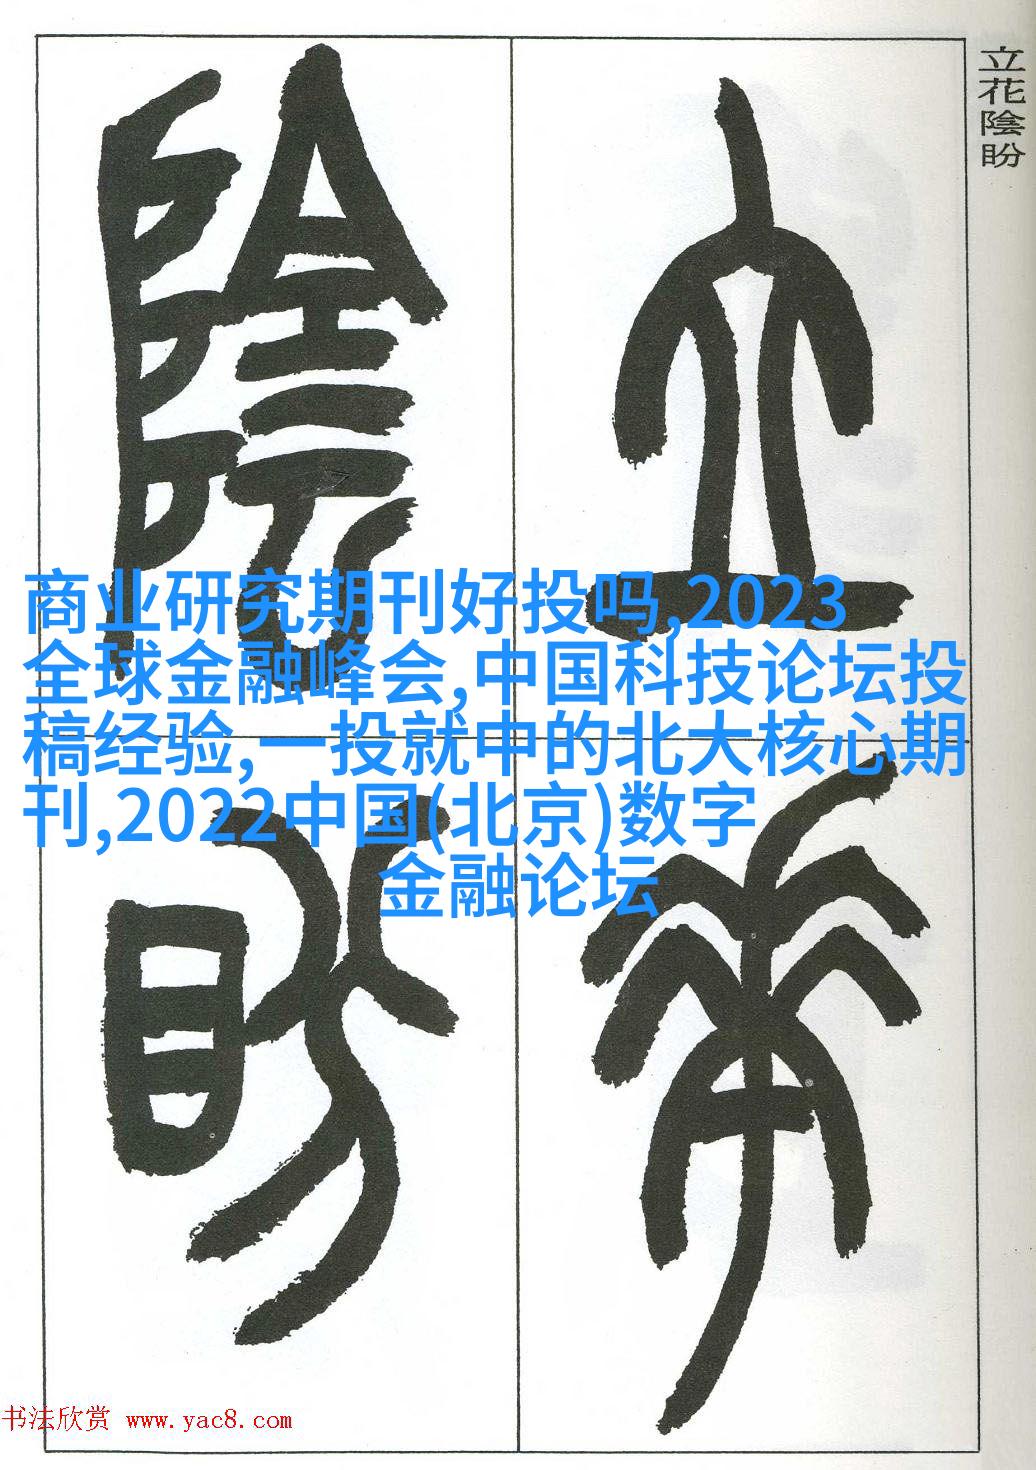 立花陰盼
立
花
陰
盼
商业研究期刊好投吗,2023
全球金融峰会,中国科技论坛投
稿经验,一投就中的北大核心期
刊,2022中国(北京)数字
金融论坛
书法欣赏 www.yac8.com